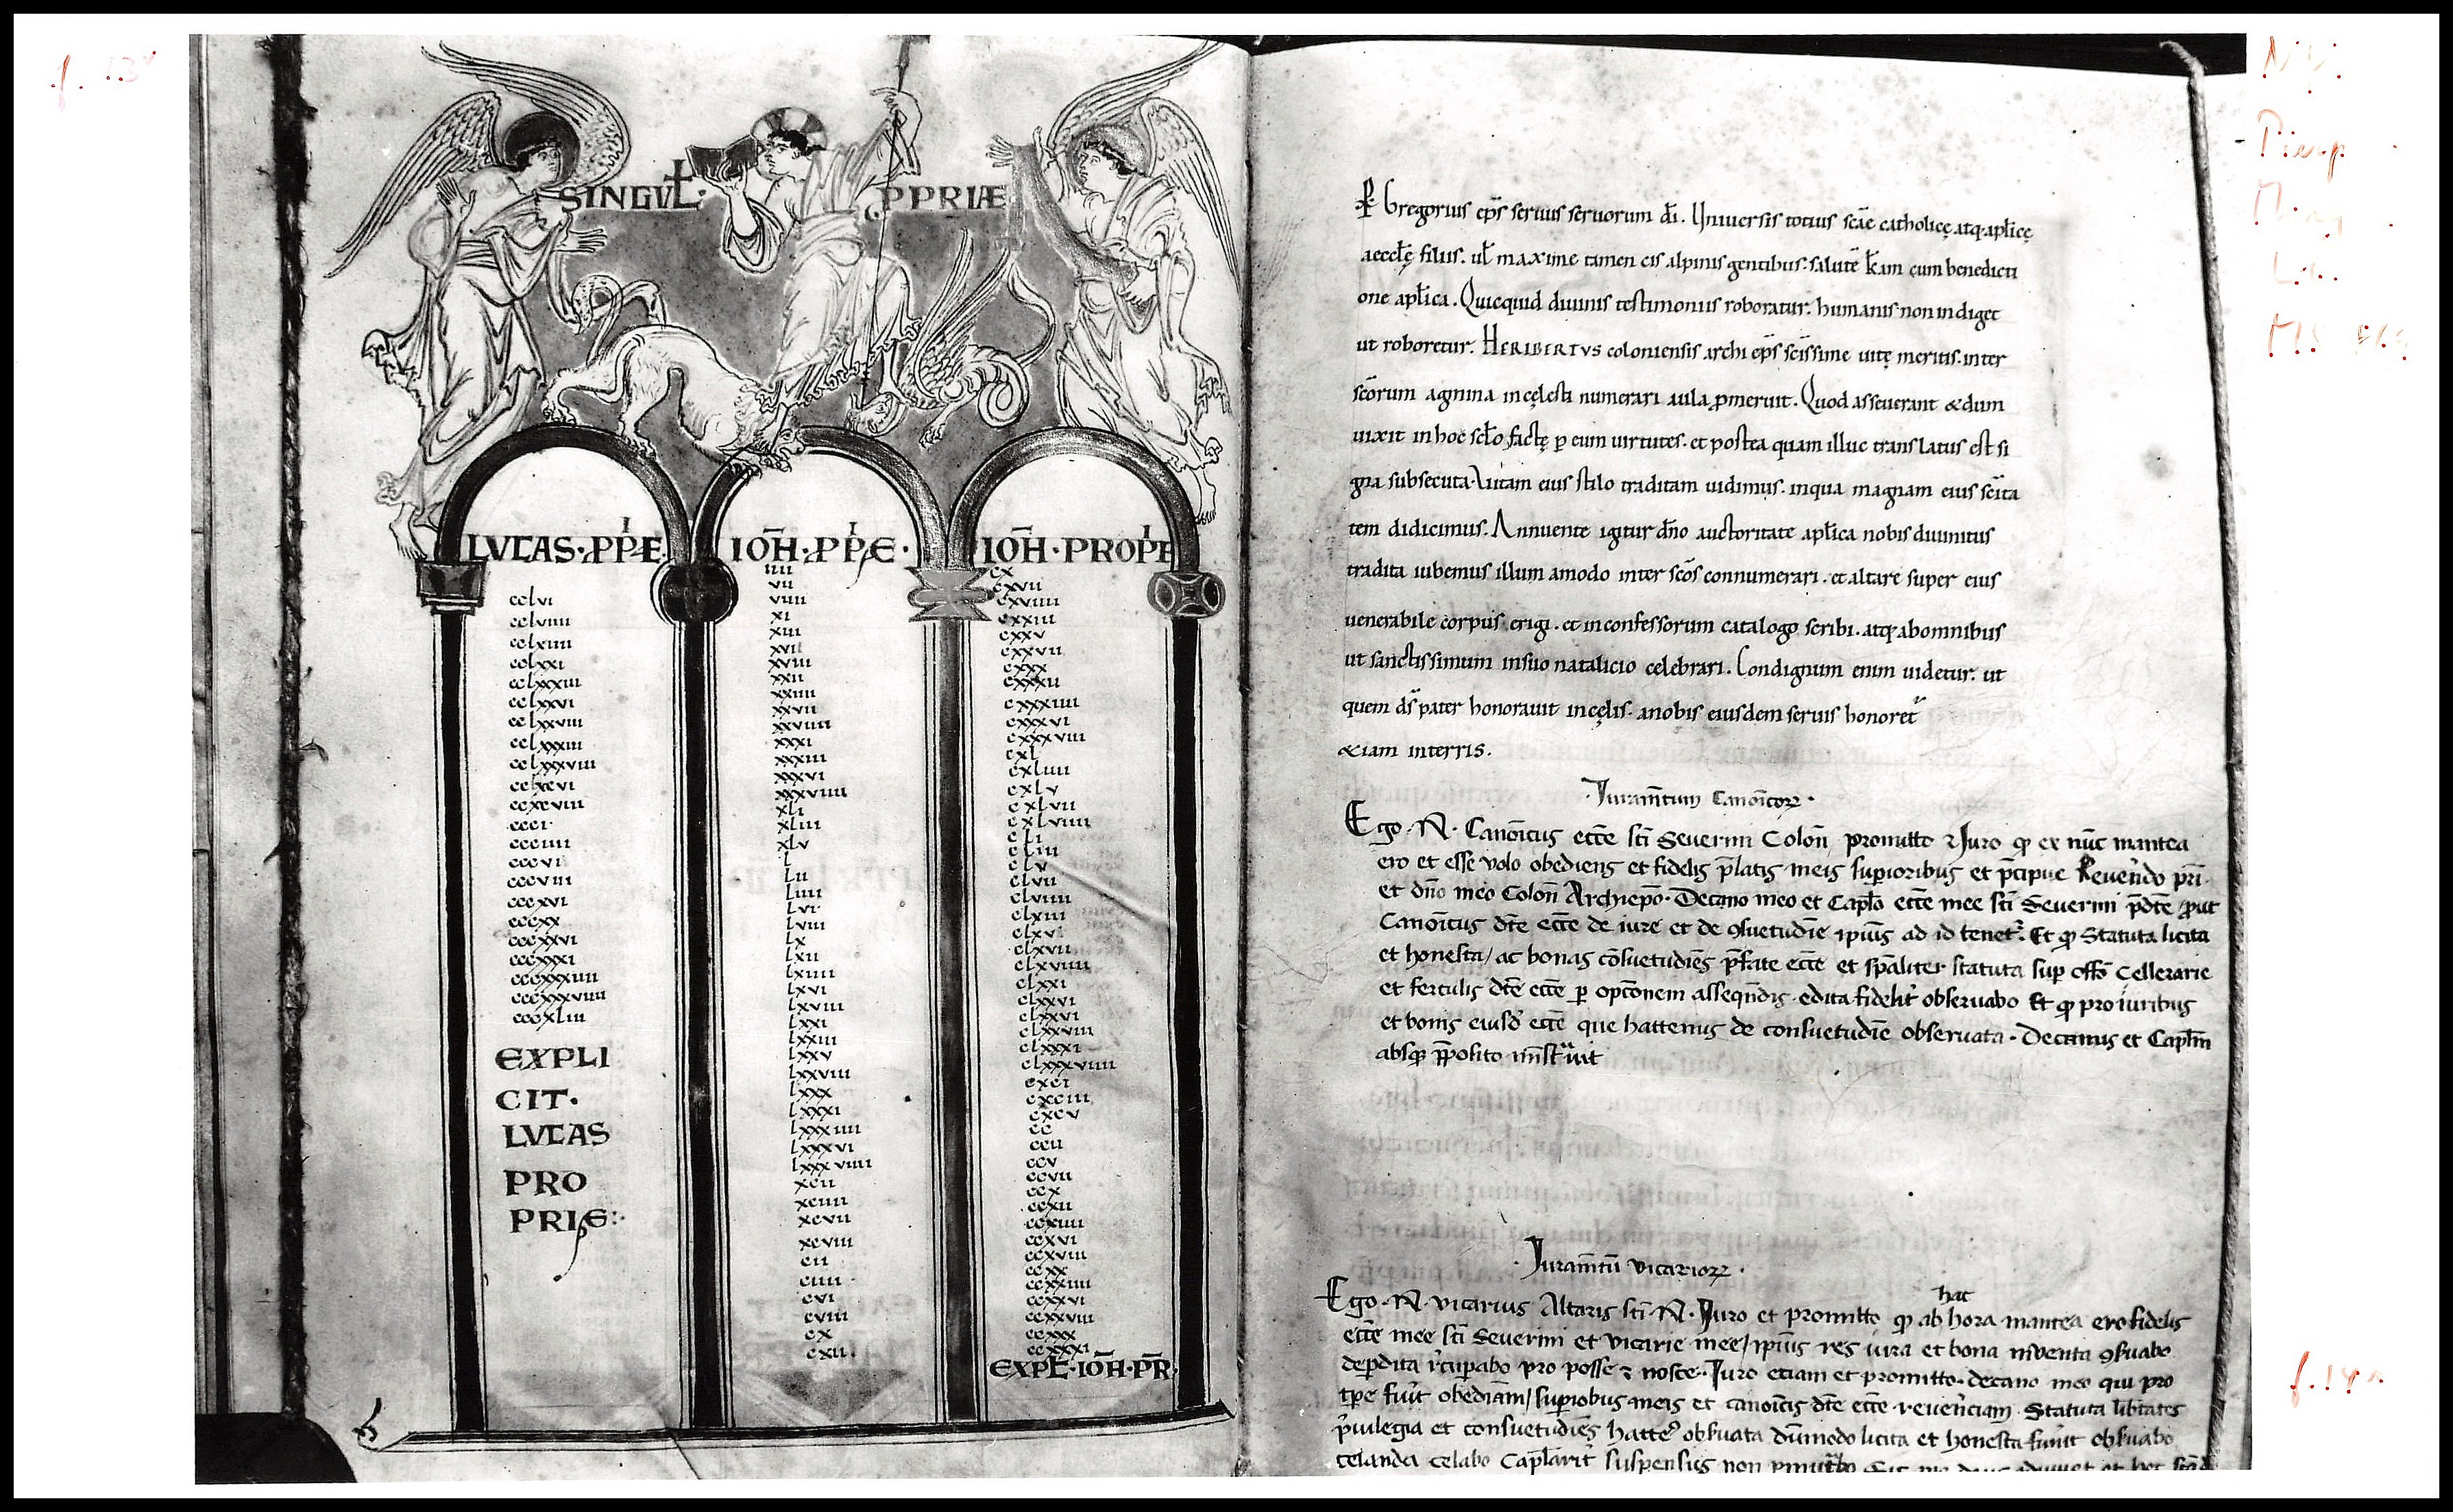 f. 13v
SINGVŁ· PPRIÆ
LVCAS·PPE
cclvi
cclviiii
cclxiiii
cclxxi
cclxxiii
cclxxvi
cclxxviii
cclxxxiii
cclxxxviii
ccxcvi
ccxcviii
ccci
ccciiii
cccvi
cccviii
cccxvi
cccxx
cccxxvi
cccxxxi
cccxxxiiii
cccxxxviiii
cccxLiii
EXPLI
CIT·
LVCAS
PRO
PRIĘ:
IOH̄·PPĘ·
iiii
vii
viiii
xi
xiii
xvii
xviii
xxii
xxiiii
xxvii
xxviiii
xxxi
xxxiii
xxxvi
xxxviiii
xLi
xLiii
xLv
L
Lii
Liiii
Lvi
Lviii
Lx
Lxii
Lxiiii
Lxvi
Lxviii
Lxxi
Lxxiii
Lxxv
Lxxviii
Lxxx
Lxxxi
Lxxxiiii
Lxxxvi
Lxxxviiii
xcii
xciiii
xcvii
xcviii
cii
ciiii
cvi
cviii
cx
cxii
IOH̄·PROPE
cx
cxvii
cxviiii
cxxiii
cxxv
cxxvii
cxxx
cxxxii
cxxxiiii
cxxxvi
cxxxviii
cxL
cxLiiii
cxLv
cxLvii
cxLviiii
cLi
cLiii
cLv
cLvii
cLviiii
cLxiii
cLxv
cLxvii
cLxviiii
cLxxi
cLxxvi
cLxxvi
cLxxviii
cLxxxi
cLxxxviiii
cxci
cxciii
cxcv
cc
ccii
ccv
ccvii
ccx
ccxii
ccxiiii
ccxvi
ccxviii
ccxx
ccxxiiii
ccxxvi
ccxxviii
ccxxx
ccxxxi
EXPŁ·IOH̄·PR̄
Gregorius ep̄s seruus seruorum dī. Uniuersis totius scāe catholicę atq; apłicę
aecclę filiis. uł maxime tamen cis alpinis gentibus. salutē k̄am cum benedicti
one apłica. Quicquid diuinis testimoniis roboratur. humanis non indiget
ut roboretur. HERIBERTVS coloniensis archi ep̄s scīssime uitę meritis. inter
scōrum agmina in cęlesti numerari aula p̱meruit. Quod asseuerant & dum
uixit in hoc scło factę p̱ eum uirtutes. et postea quam illuc translatus est si
gna subsecuta. Uitam eius stilo traditam uidimus. in qua magnam eius scīta
tem didicimus. Annuente igitur dño auctoritate apłica nobis diuinitus
tradita iubemus illum amodo inter scōs connumerari. et altare super eius
uenerabile corpus erigi. et in confessorum catalogo scribi. atq; ab omnibus
ut sanctissimum in suo natalicio celebrari. Condignum enim uidetur. ut
quem dš pater honorauit in cęlis. a nobis eiusdem seruis honoret᷑
&iam in terris.
·Iuramētum Canōicoꝝ·
Ego ·N· Canōicus eccē scī Seuerini Coloñ promitto ⁊ Iuro qꝫ ex nūc in antea
ero et esse volo obediens et fidelis p̄latis meis supioribus et p̄cipue Reuēndo pr̄i
et dño meo Coloñ Archiep̄o· Decano meo et Caplō eccē mee scī Seuerini p̄dc̄e p̱ut
Canōicus dc̄e eccē de iure et de ꝯsuetudīe ipius ad id tenet᷑. Et qꝫ Statuta licita
et honesta/ ac bonas cōsuetudīes p̄fate eccē et sp̄aliter statuta sup offō Cellerarie
et ferculis dc̄e eccē p̱ opc̄onem asseqūdis edita fidelit᷑ obseruabo Et qꝫ pro iuribus
et bonis eiusd᷑ eccē que hactenus de consuetudīe obseruata· Decanus et Caplm̄
absqꝫ p̄posito
·Iuramētū vicarioꝝ·
hac
Ego ·N· vicarius Altaris scī ·N· Iuro et promitto qꝫ ab hora in antea ero fidelis
eccē mee scī Seuerini et vicarie mee/ ipius res iura et bona inventa ꝯseruabo
dep̱dita r̄cup̱abo pro posse ⁊ nosce· Iuro eciam et promitto· decano meo qui pro
tp̄e fuīt obediam/ sup̱iobus meis et canōicis dc̄e eccē reuerēciam· Statuta lib̄tates
p̄uilegia et consuetudīes hacten᷑ obs̄uata dūmodo licita et honesta fuīnt obs̄uabo
celanda celabo
f. 14r